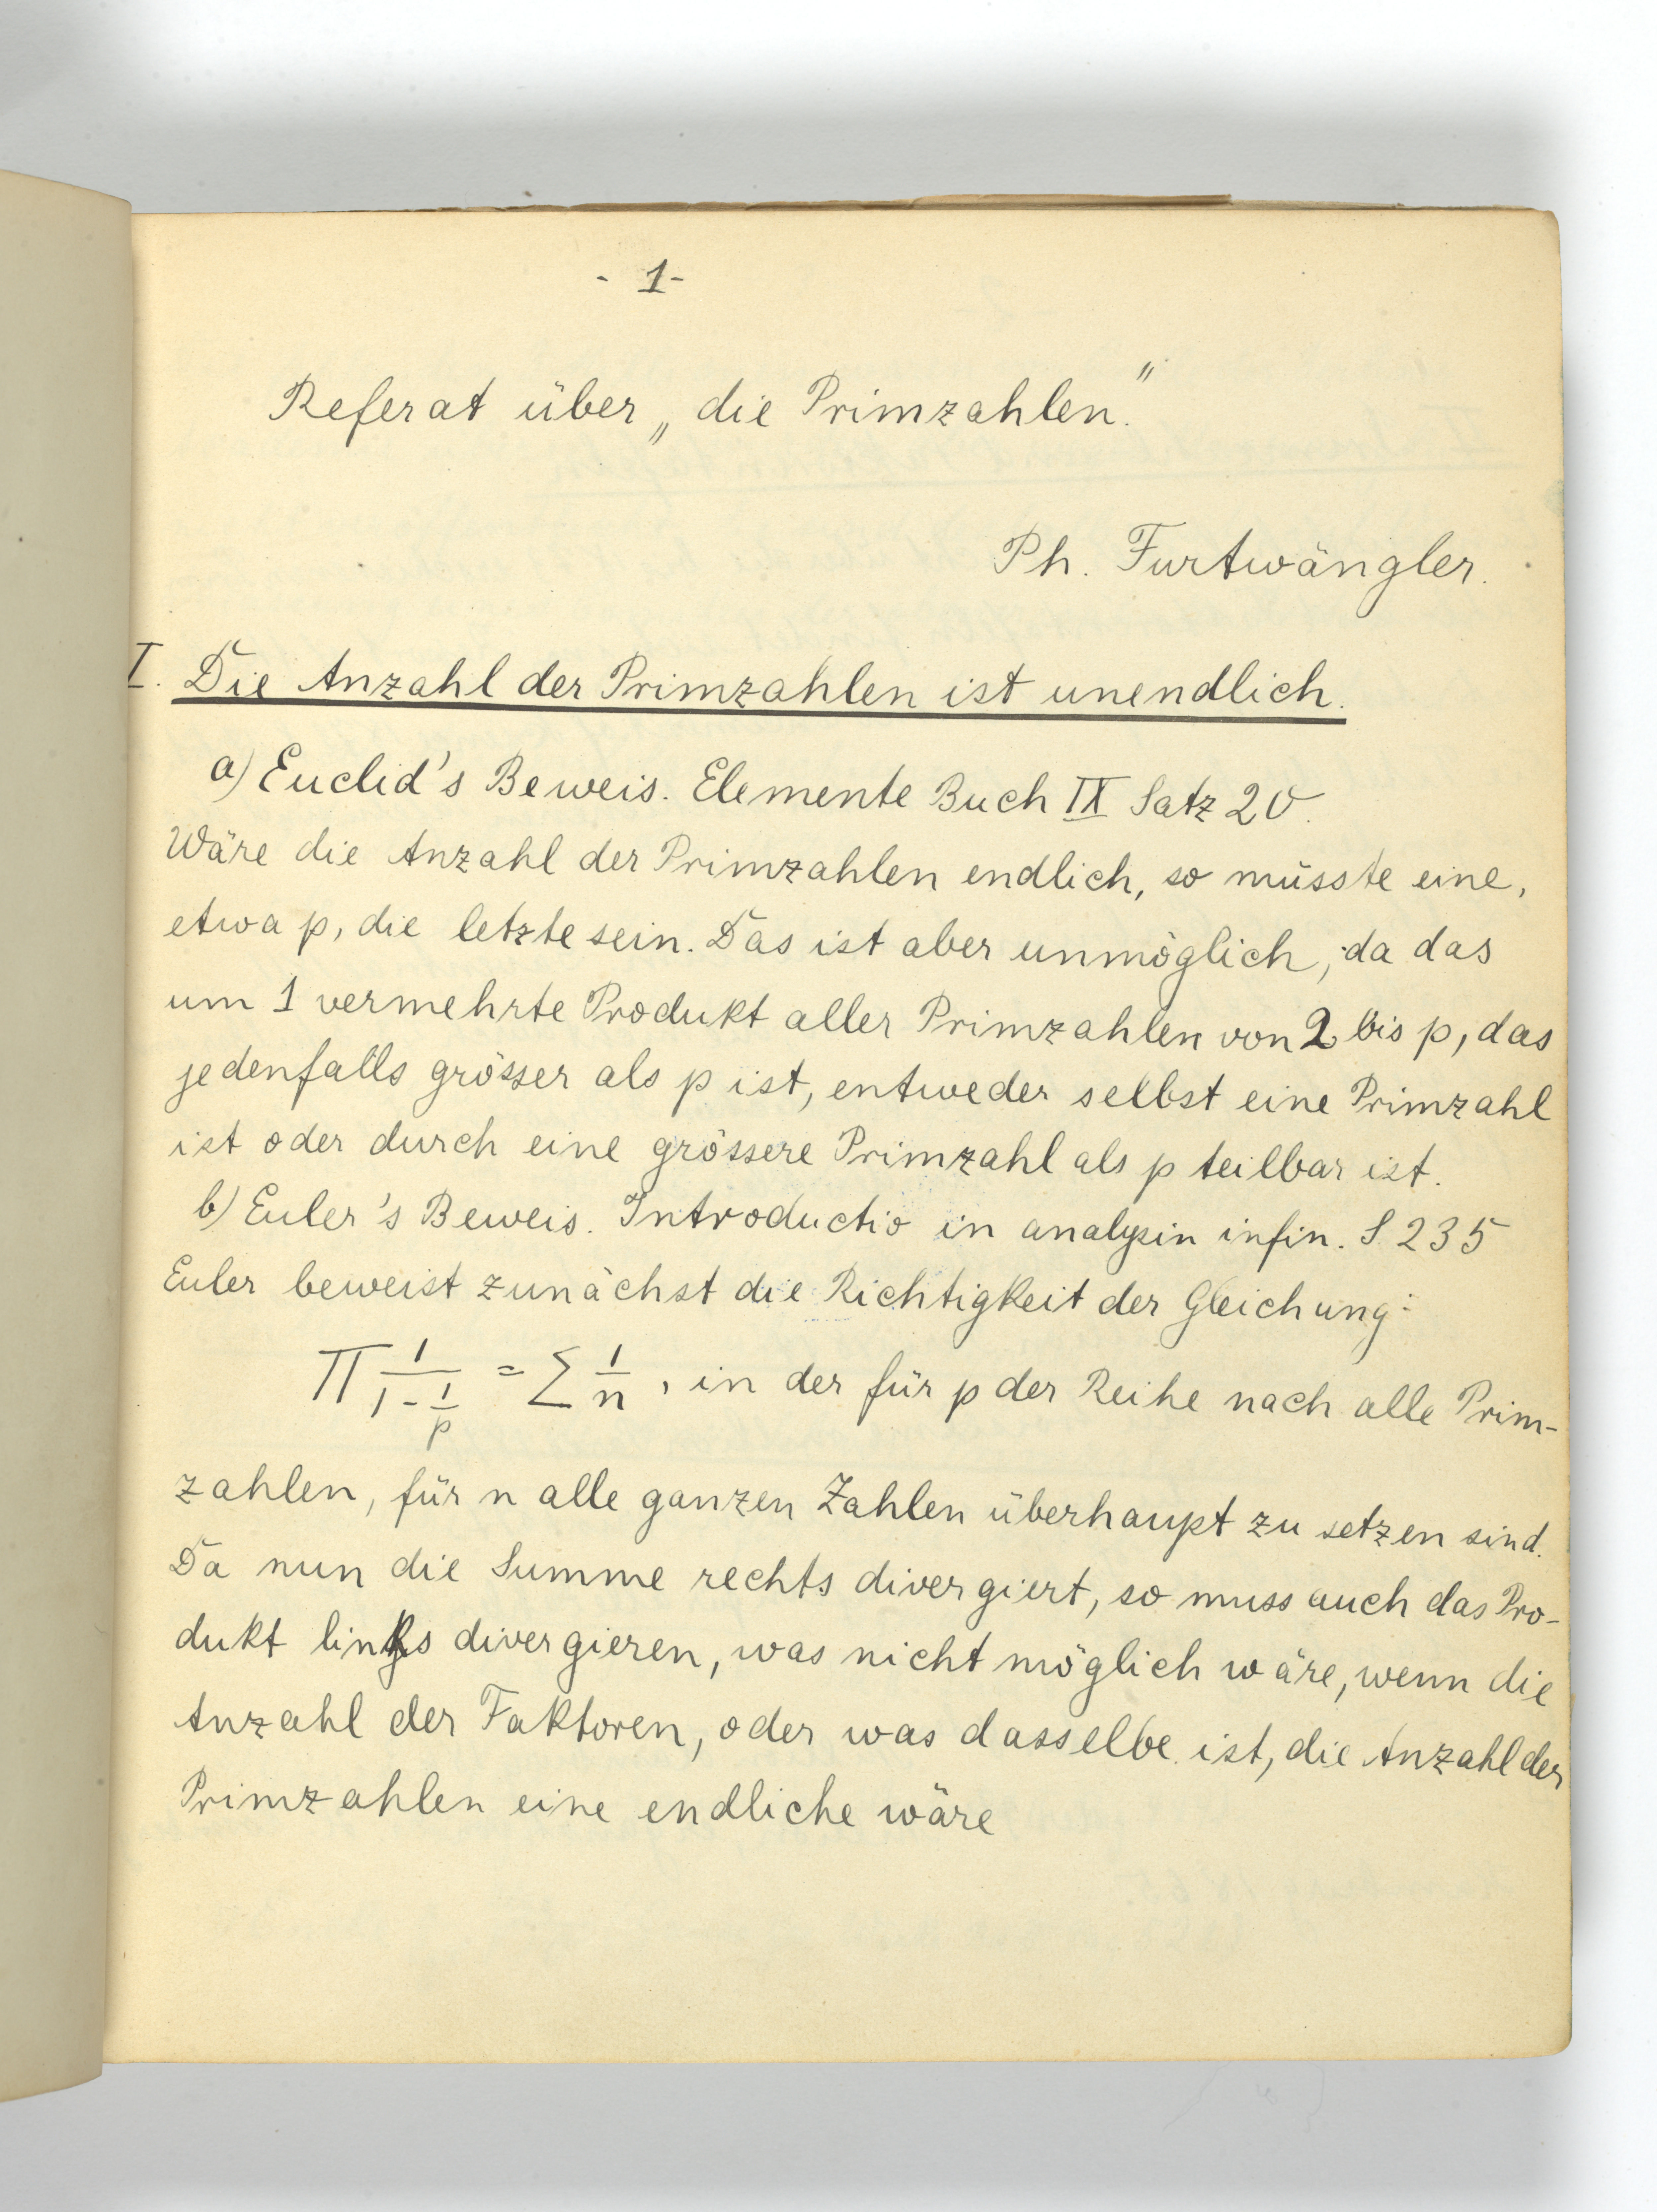 - 1 -
Referat über „die Primzahlen.“
Ph. Furtwängler.
I. Die Anzahl der Primzahlen ist unendlich.
a) Euclid's Beweis. Elemente Buch IX Satz 20.
Wäre die Anzahl der Primzahlen endlich, so müsste eine,
etwa p, die letzte sein. Das ist aber unmöglich, da das
um 1 vermehrte Produkt aller Primzahlen von 2 bis p, das
jedenfalls grösser als p ist, entweder selbst eine Primzahl
ist oder durch eine grössere Primzahl als p teilbar ist.
b) Euler's Beweis. Introductio in analysin infin. S 235
Euler beweist zunächst die Richtigkeit der Gleichung:
∏ 1/(1 - 1/p) = ∑ 1/n, in der für p der Reihe nach alle Prim-
zahlen, für n alle ganzen Zahlen überhaupt zu setzen sind.
Da nun die Summe rechts divergiert, so muss auch das Pro-
dukt links divergieren, was nicht möglich wäre, wenn die
Anzahl der Faktoren, oder was dasselbe ist, die Anzahl der
Primzahlen eine endliche wäre